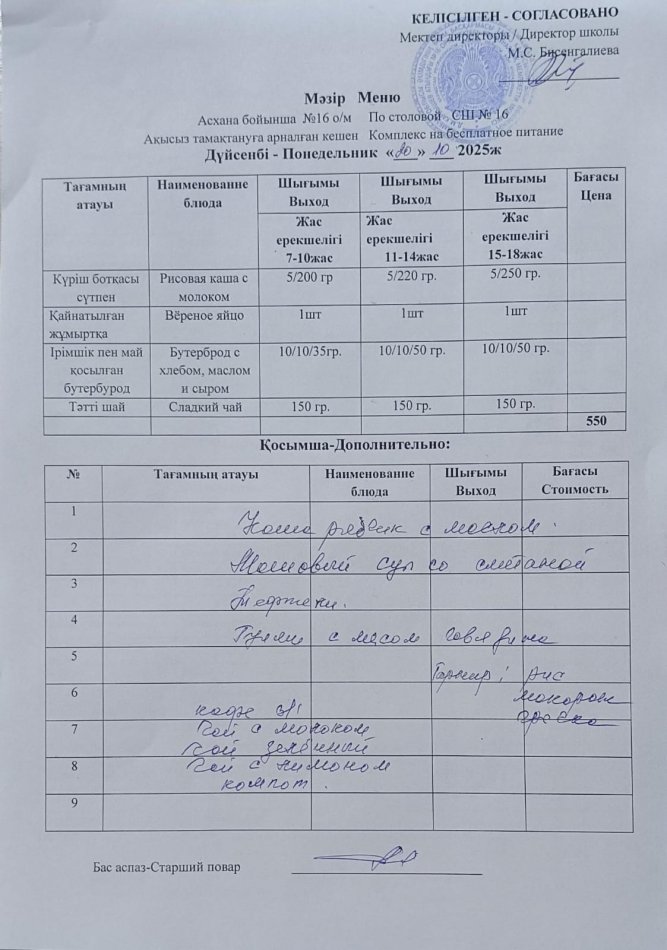 КЕЛІСІЛГЕН - СОГЛАСОВАНО
Мектеп директоры / Директор школы
М.С. Бисенгалиева
Мәзір Меню
Асхана бойынша №16 о/м По столовой СШ № 16
Ақысыз тамақтануға арналған кешен Комплекс на бесплатное питание
Дүйсенбі - Понедельник «20» 10 2025ж
Тағамның атауы Наименование блюда Шығымы Выход Шығымы Выход Шығымы Выход Бағасы Цена
Жас ерекшелігі 7-10жас Жас ерекшелігі 11-14жас Жас ерекшелігі 15-18жас
Күріш ботқасы сүтпен Рисовая каша с молоком 5/200 гр 5/220 гр. 5/250 гр.
Қайнатылған жұмыртқа Вёреное яйцо 1шт 1шт 1шт
Ірімшік пен май қосылған бутербурод Бутерброд с хлебом, маслом и сыром 10/10/35гр. 10/10/50 гр. 10/10/50 гр.
Тәтті шай Сладкий чай 150 гр. 150 гр. 150 гр.
550
Қосымша-Дополнительно:
№ Тағамның атауы Наименование блюда Шығымы Выход Бағасы Стоимость
1 Каша с маслом.
2 Машовый суп со сметаной
3 Тефтели.
4 Гуляш с мясом говядина
5 Гарнир: рис
6 макарон
кофе 3/1 гречка
7 Чай с молоком
Чай зеленый
8 Чай с лимоном
компот.
9
Бас аспаз-Старший повар